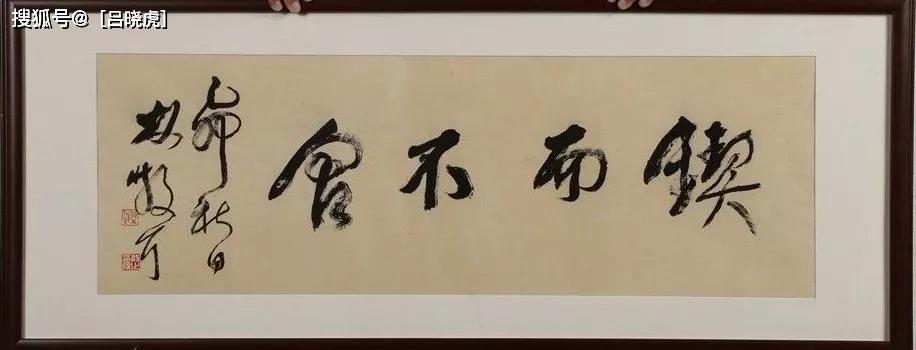 搜狐号@［吕晓虎］
鍥而不舍
乙卯秋日
林散耳